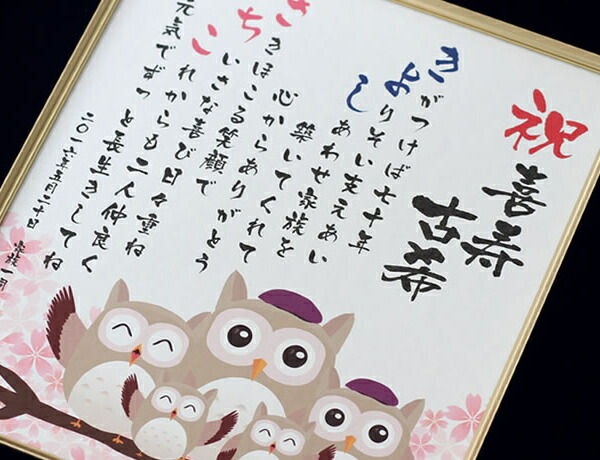 祝
喜寿
古希
きがつけば七十年
よりそい支えあい
しあわせ家族を
築いてくれて
心からありがとう
さきほこる笑顔で
ちいさな喜び日々重ね
これからも二人仲良く
元気でずっと長生きしてね
二〇一六年五月二十日
家族一同